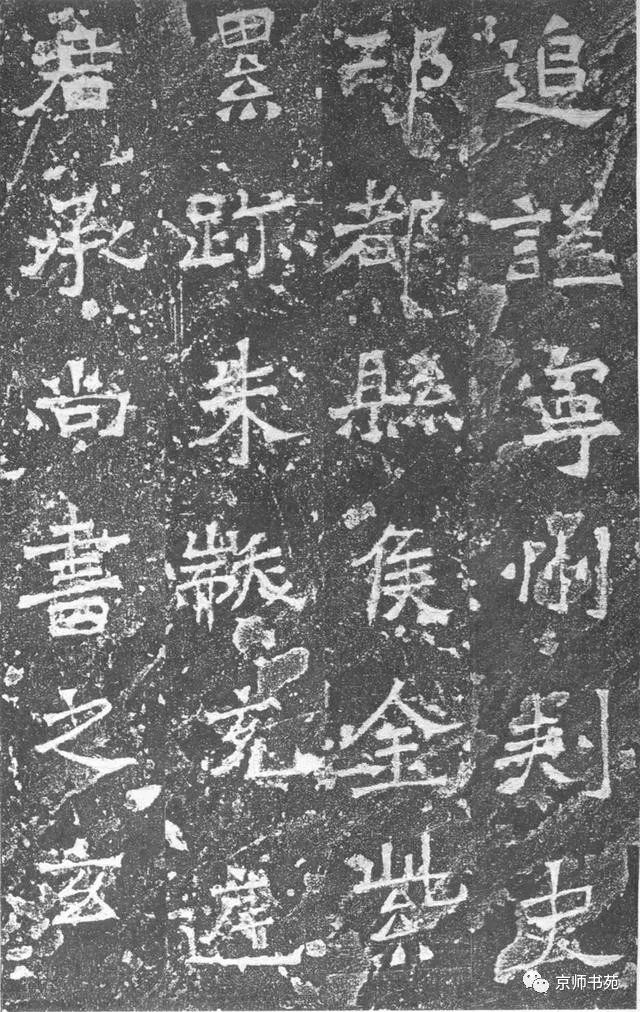 追謚寧州刺史
邛都縣侯金紫
累跡朱黻充庭
君承尚書之玄
京师书苑